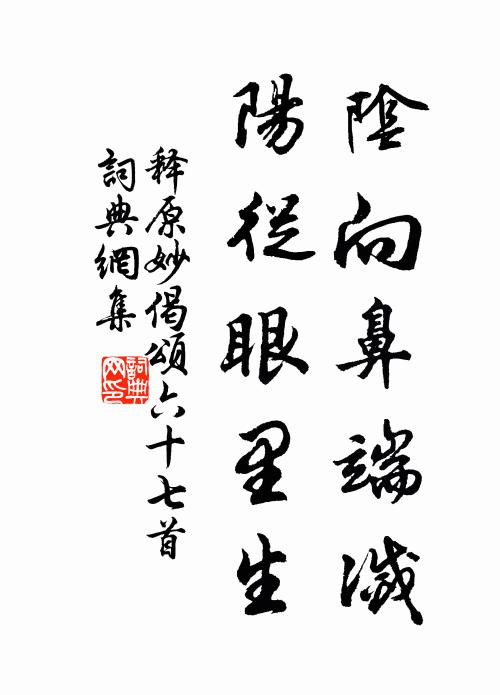 陰向鼻端滅
陽從眼里生
释原妙偈頌六十七首
詞典網集
詞典網印